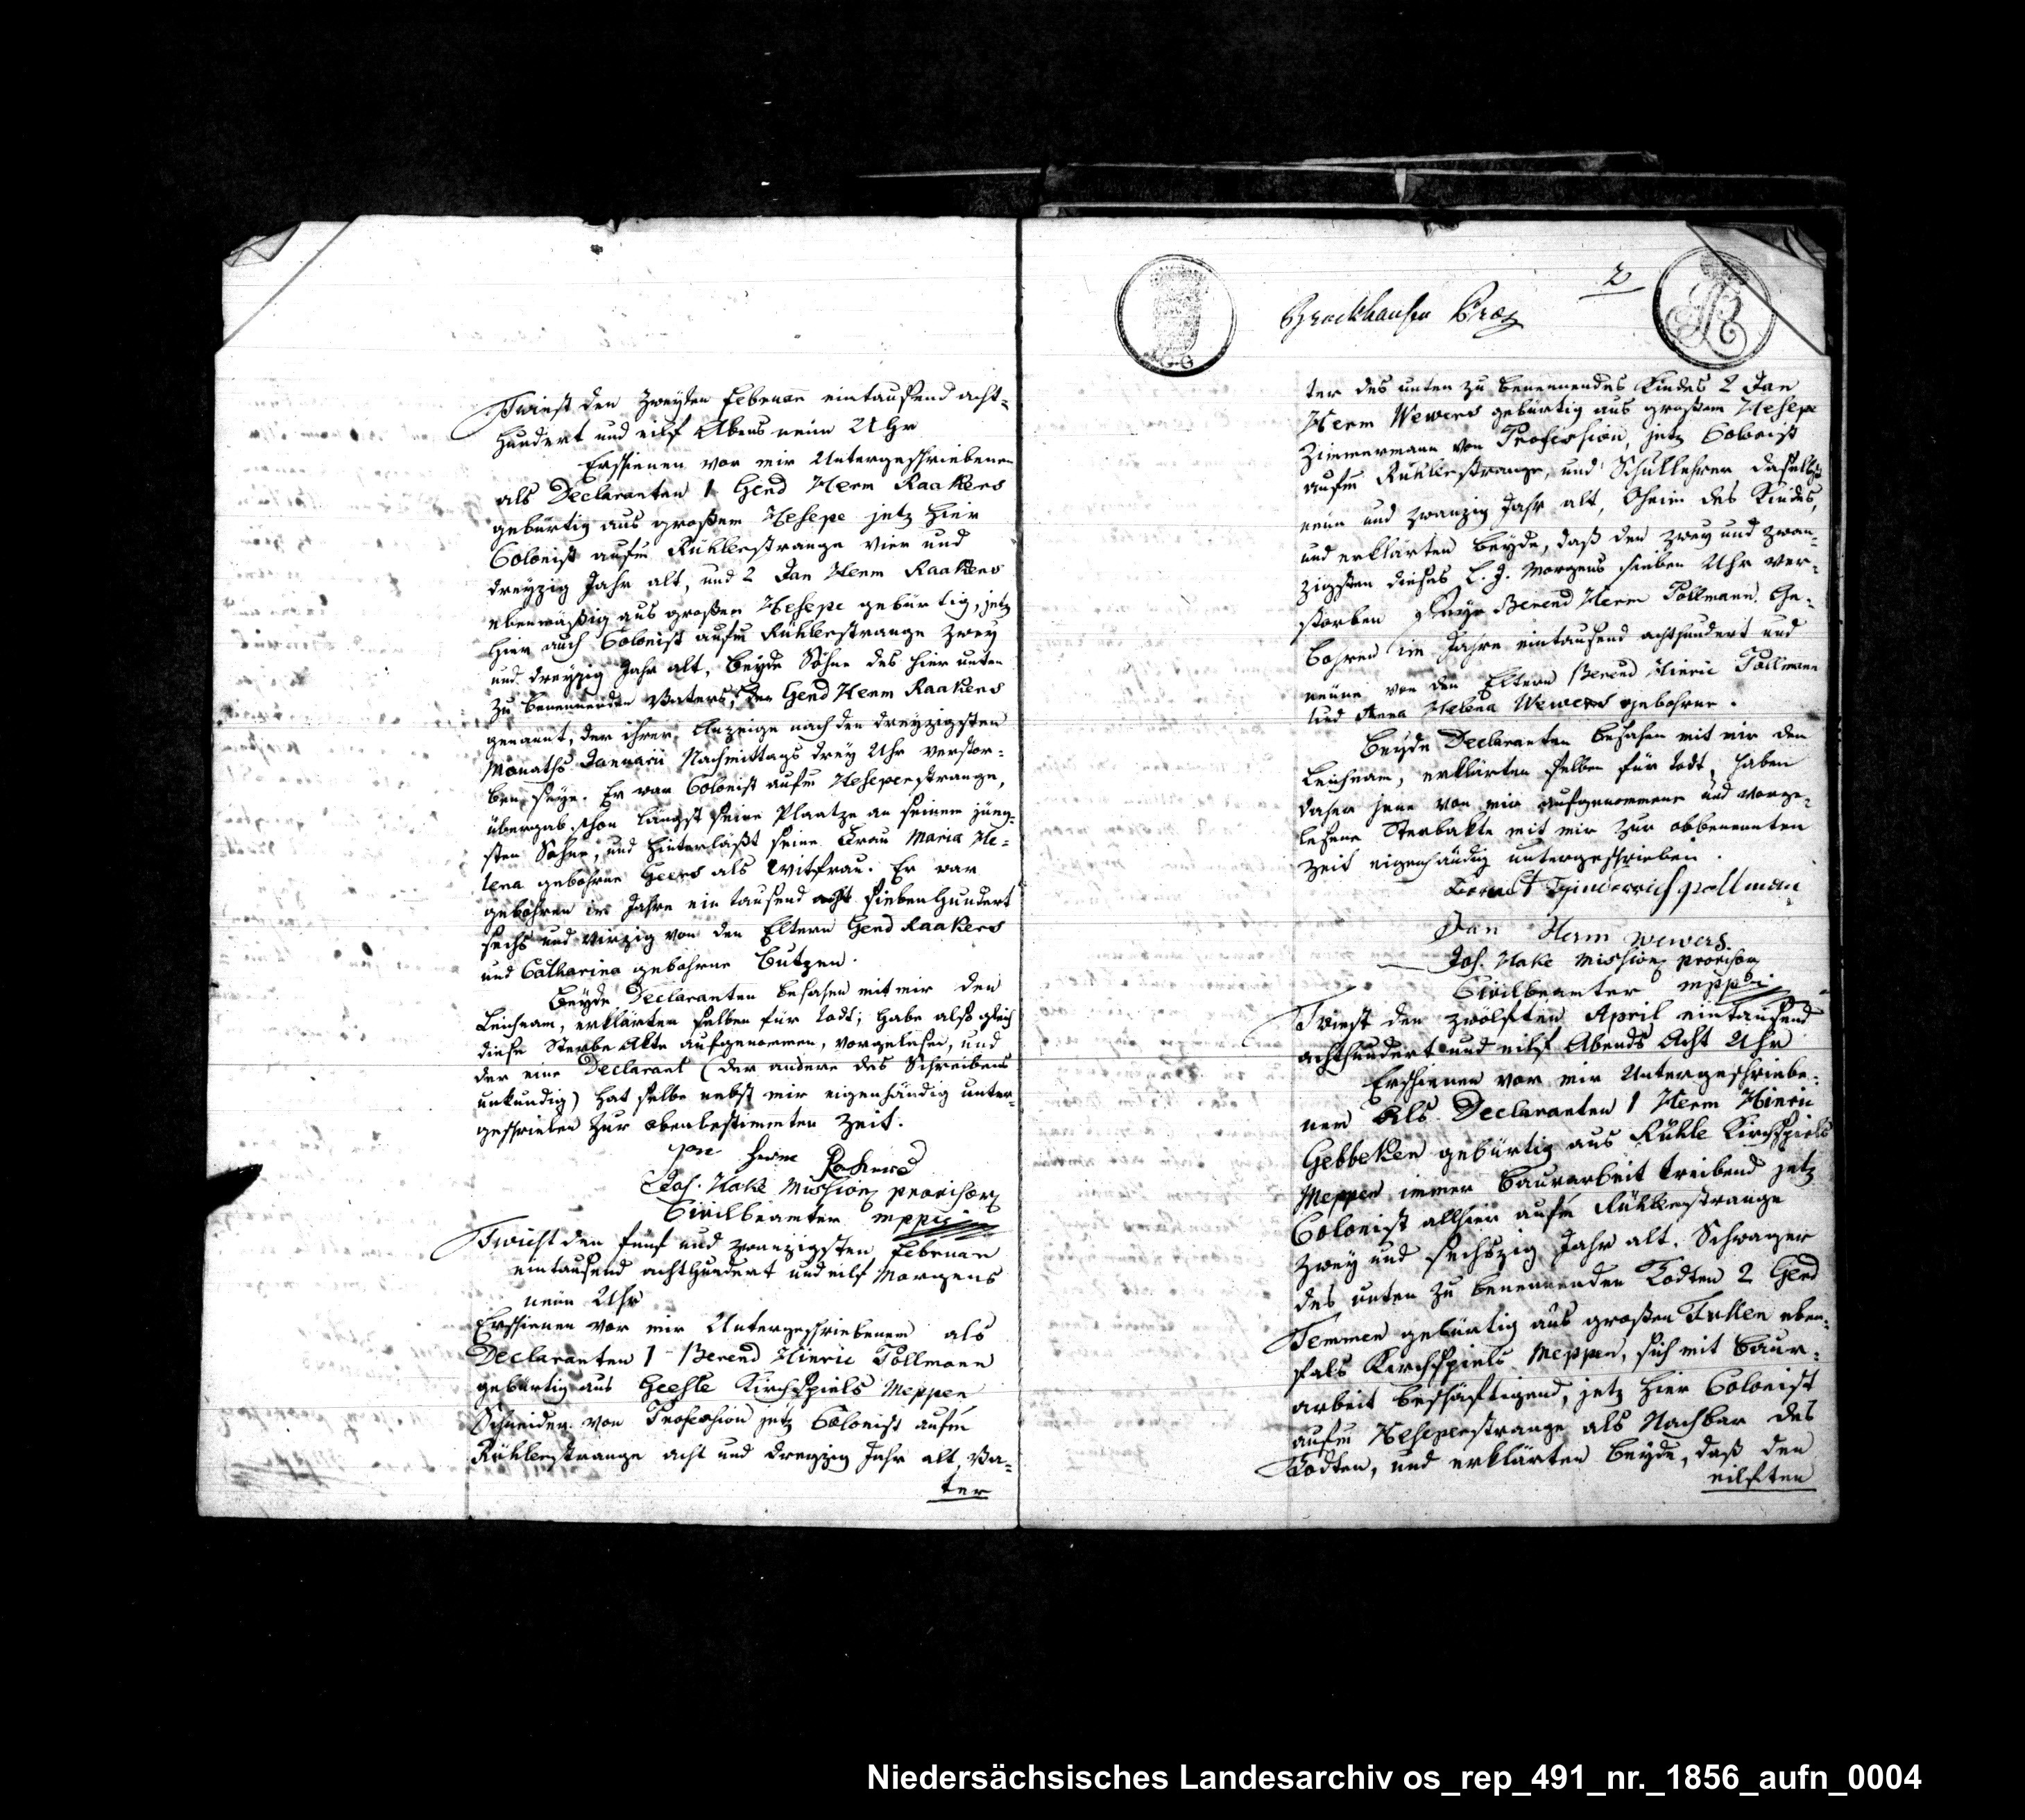 Twiest den zweyten Februar eintausend acht-
hundert und eilf Abens neun Uhr
Erschienen vor mir Untergeschriebenen
als Declaranten 1 Gerd Herm Raakers
gebürtig aus grossem Hesepe jetz hier
Colonist aufm Rühllerstrange vier und
dreyzig Jahr alt, und 2 Jan Herm Raakers
ebenmässig aus grossem Hesepe gebürtig, jetz
hier auch Colonist aufm Rühllerstrange zwey
und dreyzig Jahr alt, beyde Söhne des hier unten
zu benennenden Vaters, Gerd Herm Raakers
genannt, der ihrer Anzeige nach den dreyzigsten
Monaths Januarii Nachmittags drey Uhr verstor-
ben seye. Er war Colonist aufm Heseperstrange,
übergab schon längst seine Plaatze an seinem jüng-
sten Sohne, und hinterläßt seine Frau Maria He-
lena gebohrne Geers als Witfrau. Er war
gebohren im Jahre ein tausend siebenhundert
sechs und virzig von den Eltern Gerd Raakers
und Catharina gebohrne Butzen.
Beyde Declaranten besahen mit mir den
Leichnam, erklärten selben für todt; habe also gleich
diese Sterbe Akte aufgenommen, vorgelesen, und
der eine Declarant (der andere des Schreibens
unkundig) hat selbe nebst mir eigenhändig unter-
geschrieben zur obenbestimmten Zeit.
Jan Herm Rakers
Joh. Hake Mission provisor
Civilbeamter mppi
Twiest den fünf und zwanzigsten Februar
eintausend achthundert und eilf Morgens
neun Uhr
Erschienen vor mir Untergeschriebenem als
Declaranten 1 Berend Hinric Pöllmann
gebürtig aus Geeste Kirchspiels Meppen
Schneider von Profession jetz Colonist aufm
Rühlerstrange acht und dreyzig Jahr alt, Va-
ter
Brockhausen
2
ter des unten zu benennendes Kindes 2 Jan
Herm Wewers gebürtig aus grossem Hesepe
Zimmermann von Profession, jetz Colonist
aufm Rühllerstrange, und Schullehrer daselbst
neun und zwanzig Jahr alt, Oheim des Kindes,
und erklärten beyde, daß den zwey und zwan-
zigsten dieses l. J. Morgens sieben Uhr ver-
storben seye Berend Herm Pöllmann. Ge-
bohren im Jahre eintausend achthundert und
neune von den Eltern Berend Hinric Pöllmann
und Anna Helena Wewers gebohrne.
Beyde Declaranten besahen mit mir den
Leichnam, erklärten selben für todt, haben
daher jene von mir aufgenommene und vorge-
lesene Sterbakte mit mir zur obbenennten
Zeit eigenhändig untergeschrieben.
Bernd Hinderrich pollman
Jan Herm wewers.
Joh. Hake Mission provisor
Civilbeamter mppi
Twiest den zwölften April eintausend
achthundert und eilf Abends Acht Uhr
Erschienen vor mir Untergeschriebe-
nen Als Declaranten 1 Herm Hinric
Gebbeken gebürtig aus Rühle Kirchspiels
Meppen immer Baurarbeit treibend jetz
Colonist allhier aufm Rühllerstrange
zwey und sechszig Jahr alt. Schwager
des unten zu benennenden Todten 2 Gerd
Temmen gebürtig aus grossen Fullen eben-
fals Kirchspiels Meppen, sich mit Baur-
arbeit beschäftigend, jetz hier Colonist
aufm Heseperstrange als Nachbar des
Todten, und erklärten beyde, daß den
eilften
Niedersächsisches Landesarchiv os_rep_491_nr._1856_aufn_0004